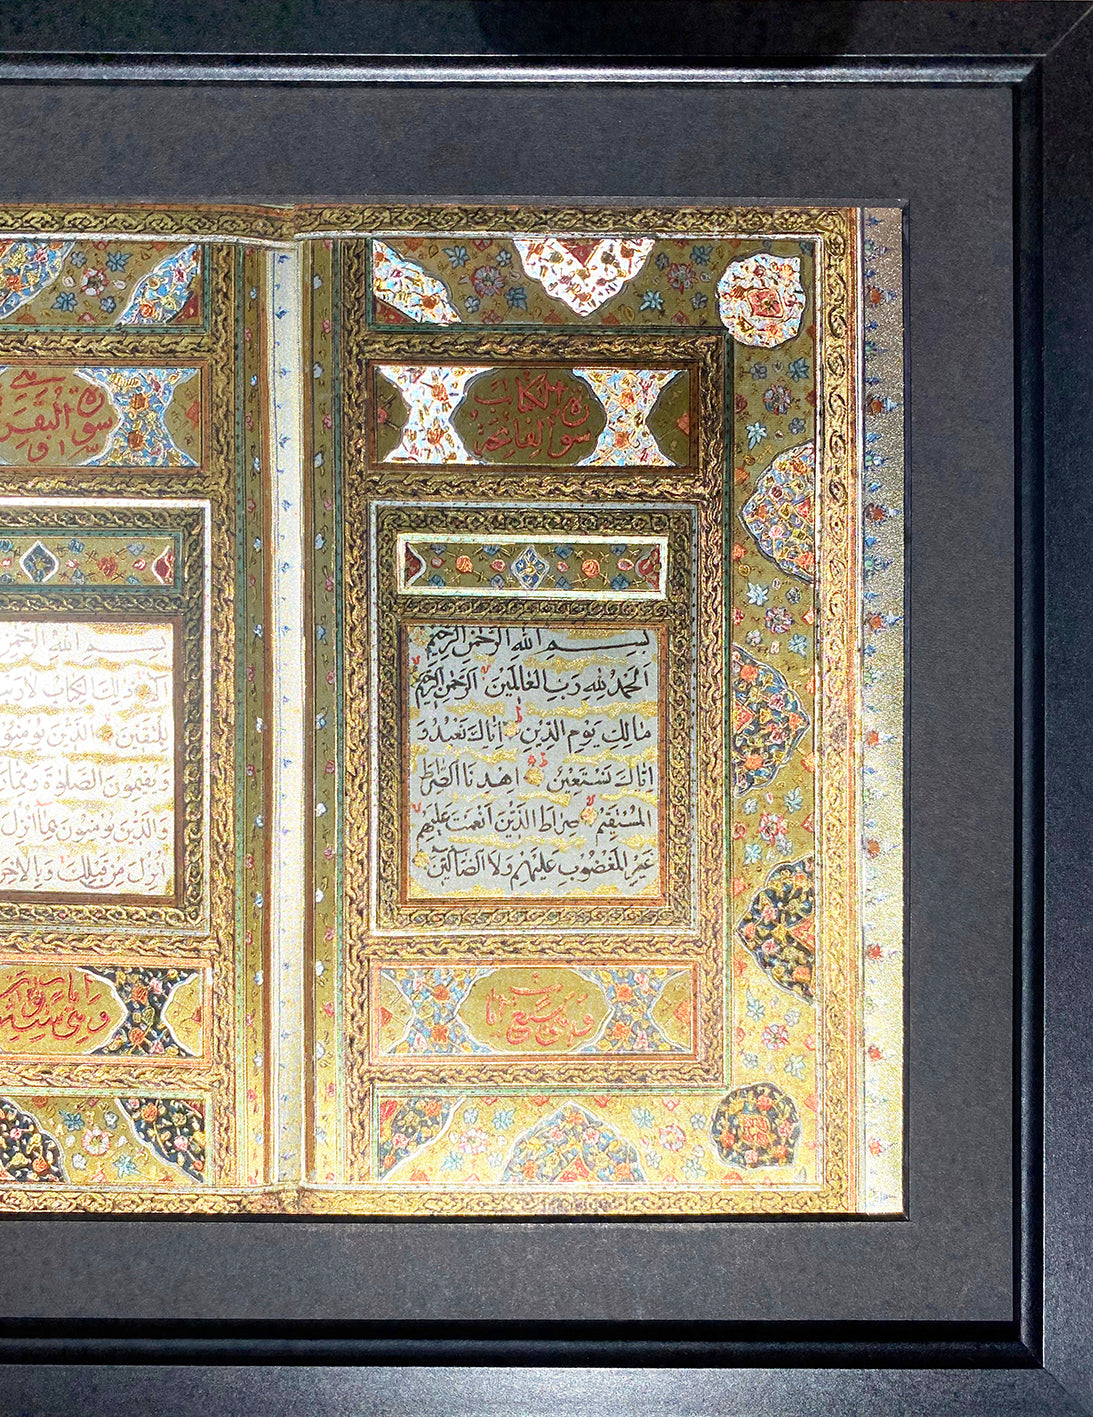 سورة الفاتحة الكتاب
بسم الله الرحمن الرحيم
الحمد لله رب العالمين الرحمن الرحيم
مالك يوم الدين اياك نعبد و
اياك نستعين اهدنا الصراط
المستقيم صراط الذين انعمت عليهم
غير المغضوب عليهم ولا الضالين
وهي سبع
سورة البقرة
بسم الله الرحمن
الم ذلك الكتاب لا ريب
للمتقين الذين يؤمنون
ويقيمون الصلوة ومما
والذين يؤمنون بما انزل
انزل من قبلك وبالاخرة